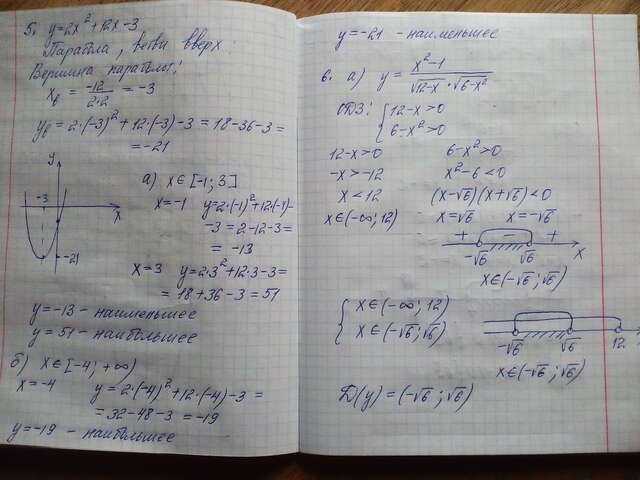 5. y=2x²+12x-3
Парабола, ветви вверх.
Вершина параболы:
x_в = -12/2·2 = -3
y_в = 2·(-3)²+12·(-3)-3 = 18-36-3 =
= -21
y
-3
x
-21
а) x∈[-1; 3]
x=-1 y=2·(-1)²+12·(-1)-
-3=2-12-3=
= -13
x=3 y=2·3²+12·3-3=
= 18+36-3=51
y=-13 - наименьшее
y=51 - наибольшее
б) x∈[-4; +∞)
x=-4 y=2·(-4)²+12·(-4)-3 =
=32-48-3 = -19
y=-19 - наибольшее
y=-21 - наименьшее
6. а) y = x²-1/√12-x · √6-x²
ОДЗ: { 12-x>0
6-x²>0
12-x>0 6-x²>0
-x>-12 x²-6<0
x<12 (x-√6)(x+√6)<0
x∈(-∞;12) x=√6 x=-√6
+ - +
-√6 √6 x
x∈(-√6;√6)
{ x∈(-∞;12)
x∈(-√6;√6)
-√6 √6 12
x∈(-√6;√6)
D(y)=(-√6;√6)